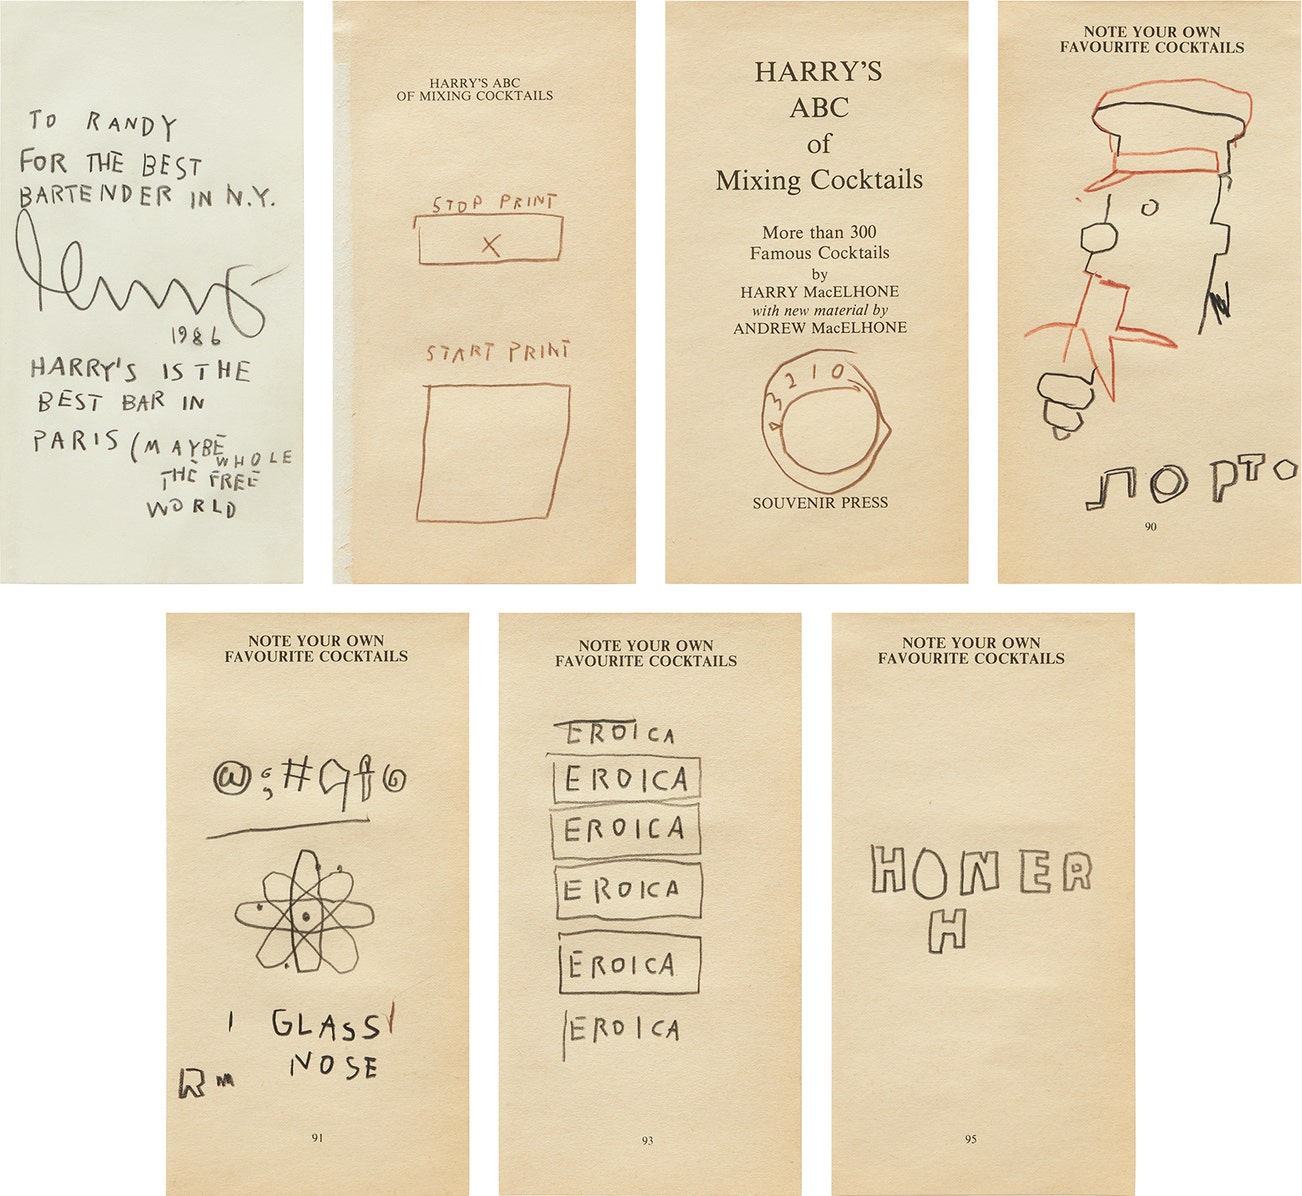 TO RANDY
FOR THE BEST
BARTENDER IN N.Y.
1986
HARRY'S IS THE
BEST BAR IN
PARIS (MAYBE WHOLE
THE FREE
WORLD
HARRY'S ABC
OF MIXING COCKTAILS
STOP PRINT
X
START PRINT
HARRY'S
ABC
of
Mixing Cocktails
More than 300
Famous Cocktails
by
HARRY MacELHONE
with new material by
ANDREW MacELHONE
4 3 2 1 0
SOUVENIR PRESS
NOTE YOUR OWN
FAVOURITE COCKTAILS
ЛO PTO
90
NOTE YOUR OWN
FAVOURITE COCKTAILS
GLASS
NOSE
91
NOTE YOUR OWN
FAVOURITE COCKTAILS
EROICA
EROICA
EROICA
EROICA
EROICA
EROICA
93
NOTE YOUR OWN
FAVOURITE COCKTAILS
HONER
H
95